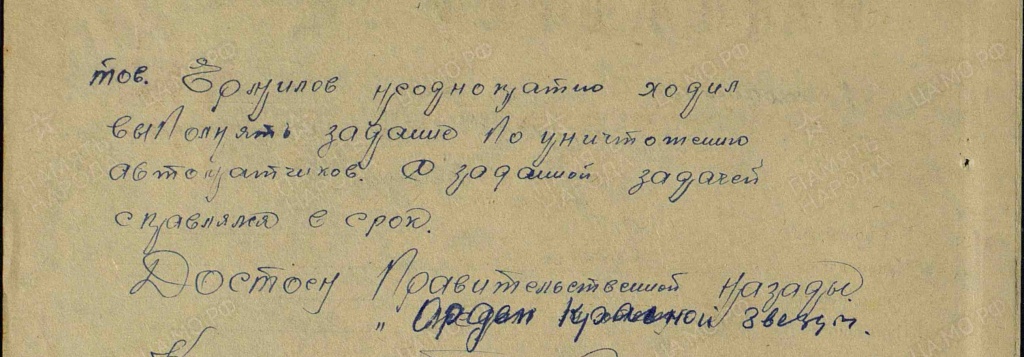 тов. Ермилов неоднократно ходил
выполнять задание по уничтожению
автоматчиков. С заданной задачей
справлялся в срок.
Достоен Правительственной награды
„ Орден Красной Звезды.